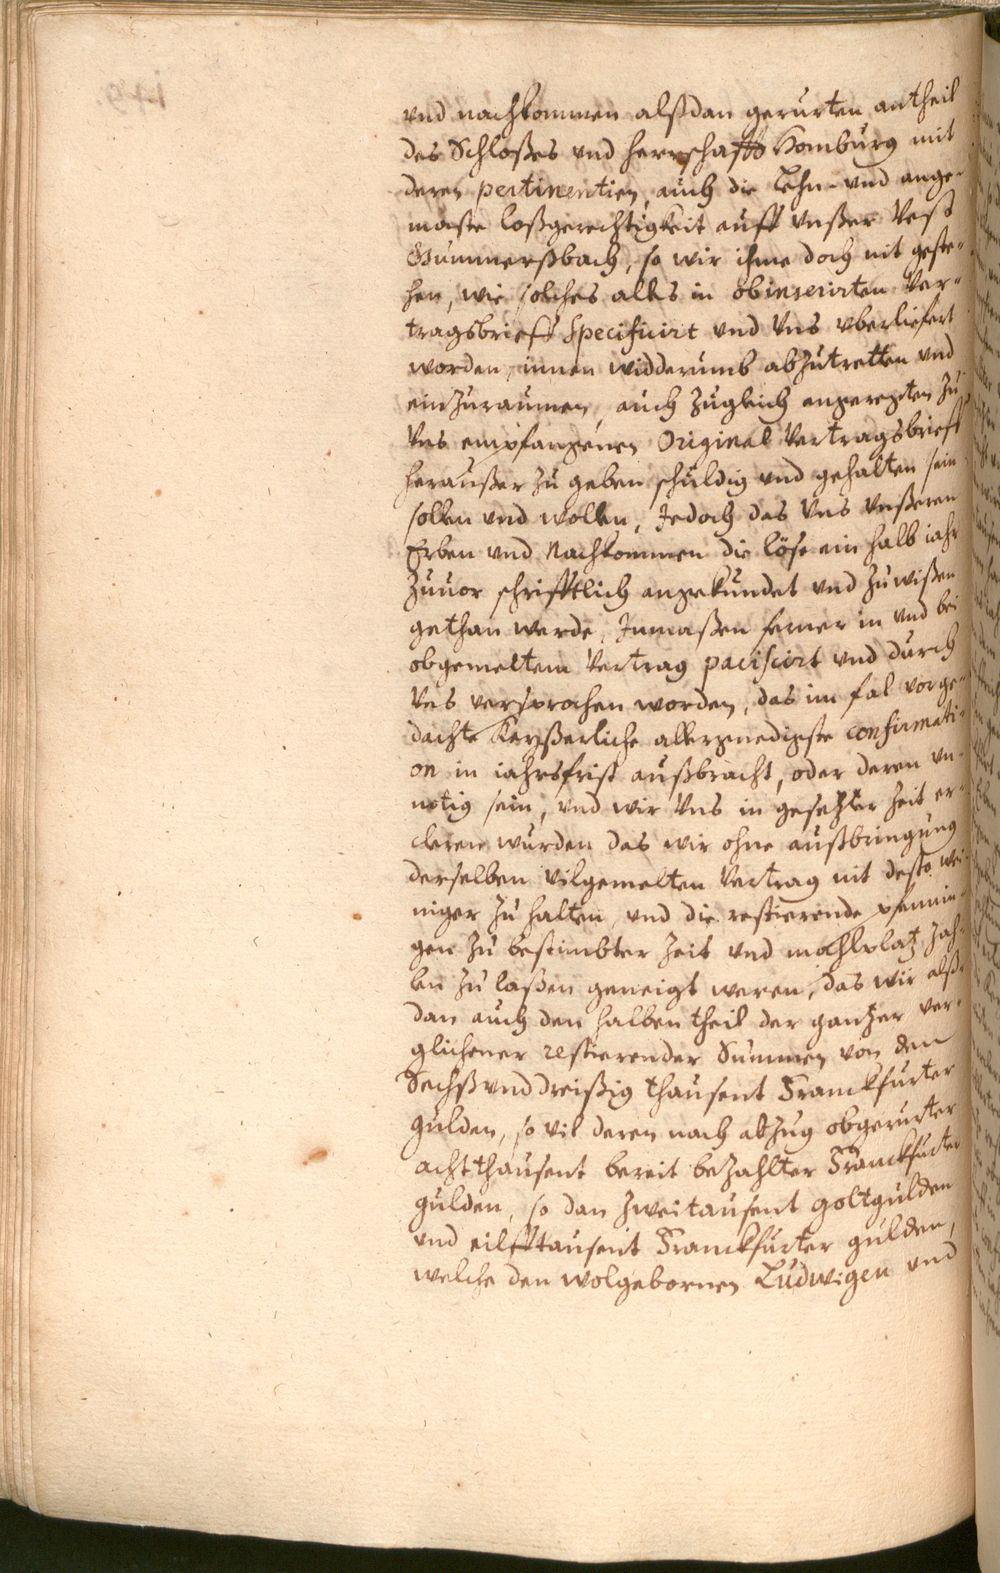 vnd nachkommen alßdan gerurten antheil
des Schloßes vnd herrschafft Homburg mit
deren pertinentien, auch die Lehn- vnd ange-
maste loßgerechtigkeit auff vnßer Vest
Gummerßbach, so wir ihme doch nit geste-
hen, wie solches alles in obinserirten Ver-
tragsbrieff specificirt vnd Vns vberliefert
worden, innen widderumb abzutretten vnd
einzuraumen, auch zugleich angeregten zu
Vns empfangenen Original Vertragsbrieff
heraußer zu geben schuldig vnd gehalten sein
sollen vnd wollen, Jedoch das Vns Vnßeren
Erben vnd Nachkommen die löse ein halb iahr
zuuor schrifftlich angekündet vnd zuwißen
gethan werde, Jnmaßen ferner in vnd bei
obgemeltem Vertrag paciscirt vnd durch
Vns versprochen worden, das im fal vorge-
dachte Keyßerliche allergnedigste confirmati-
on in iahrsfrist außbracht, oder deren vn-
nötig sein, vnd wir Vns in gesetzter Zeit er-
cleren wurden das wir ohne außbringung
derselben vilgemelten Vertrag nit desto we-
niger zu halten, vnd die restierende pfennin-
gen zu bestimbter Zeit vnd mahlplatz zah-
len zu laßen geneigt weren, das wir alß-
dan auch den halben theil der gantzer ver-
glichener restierender Summen von den
Sechßvnddreißig thausent Franckfurter
gulden, so vil deren nach abzug obgerurter
acht thausent bereit bezahlter Franckfurter
gulden, so dan zweitausent goltgulden
vnd eilfftausent Franckfurter gulden,
welche den wolgebornen Ludwigen vnd